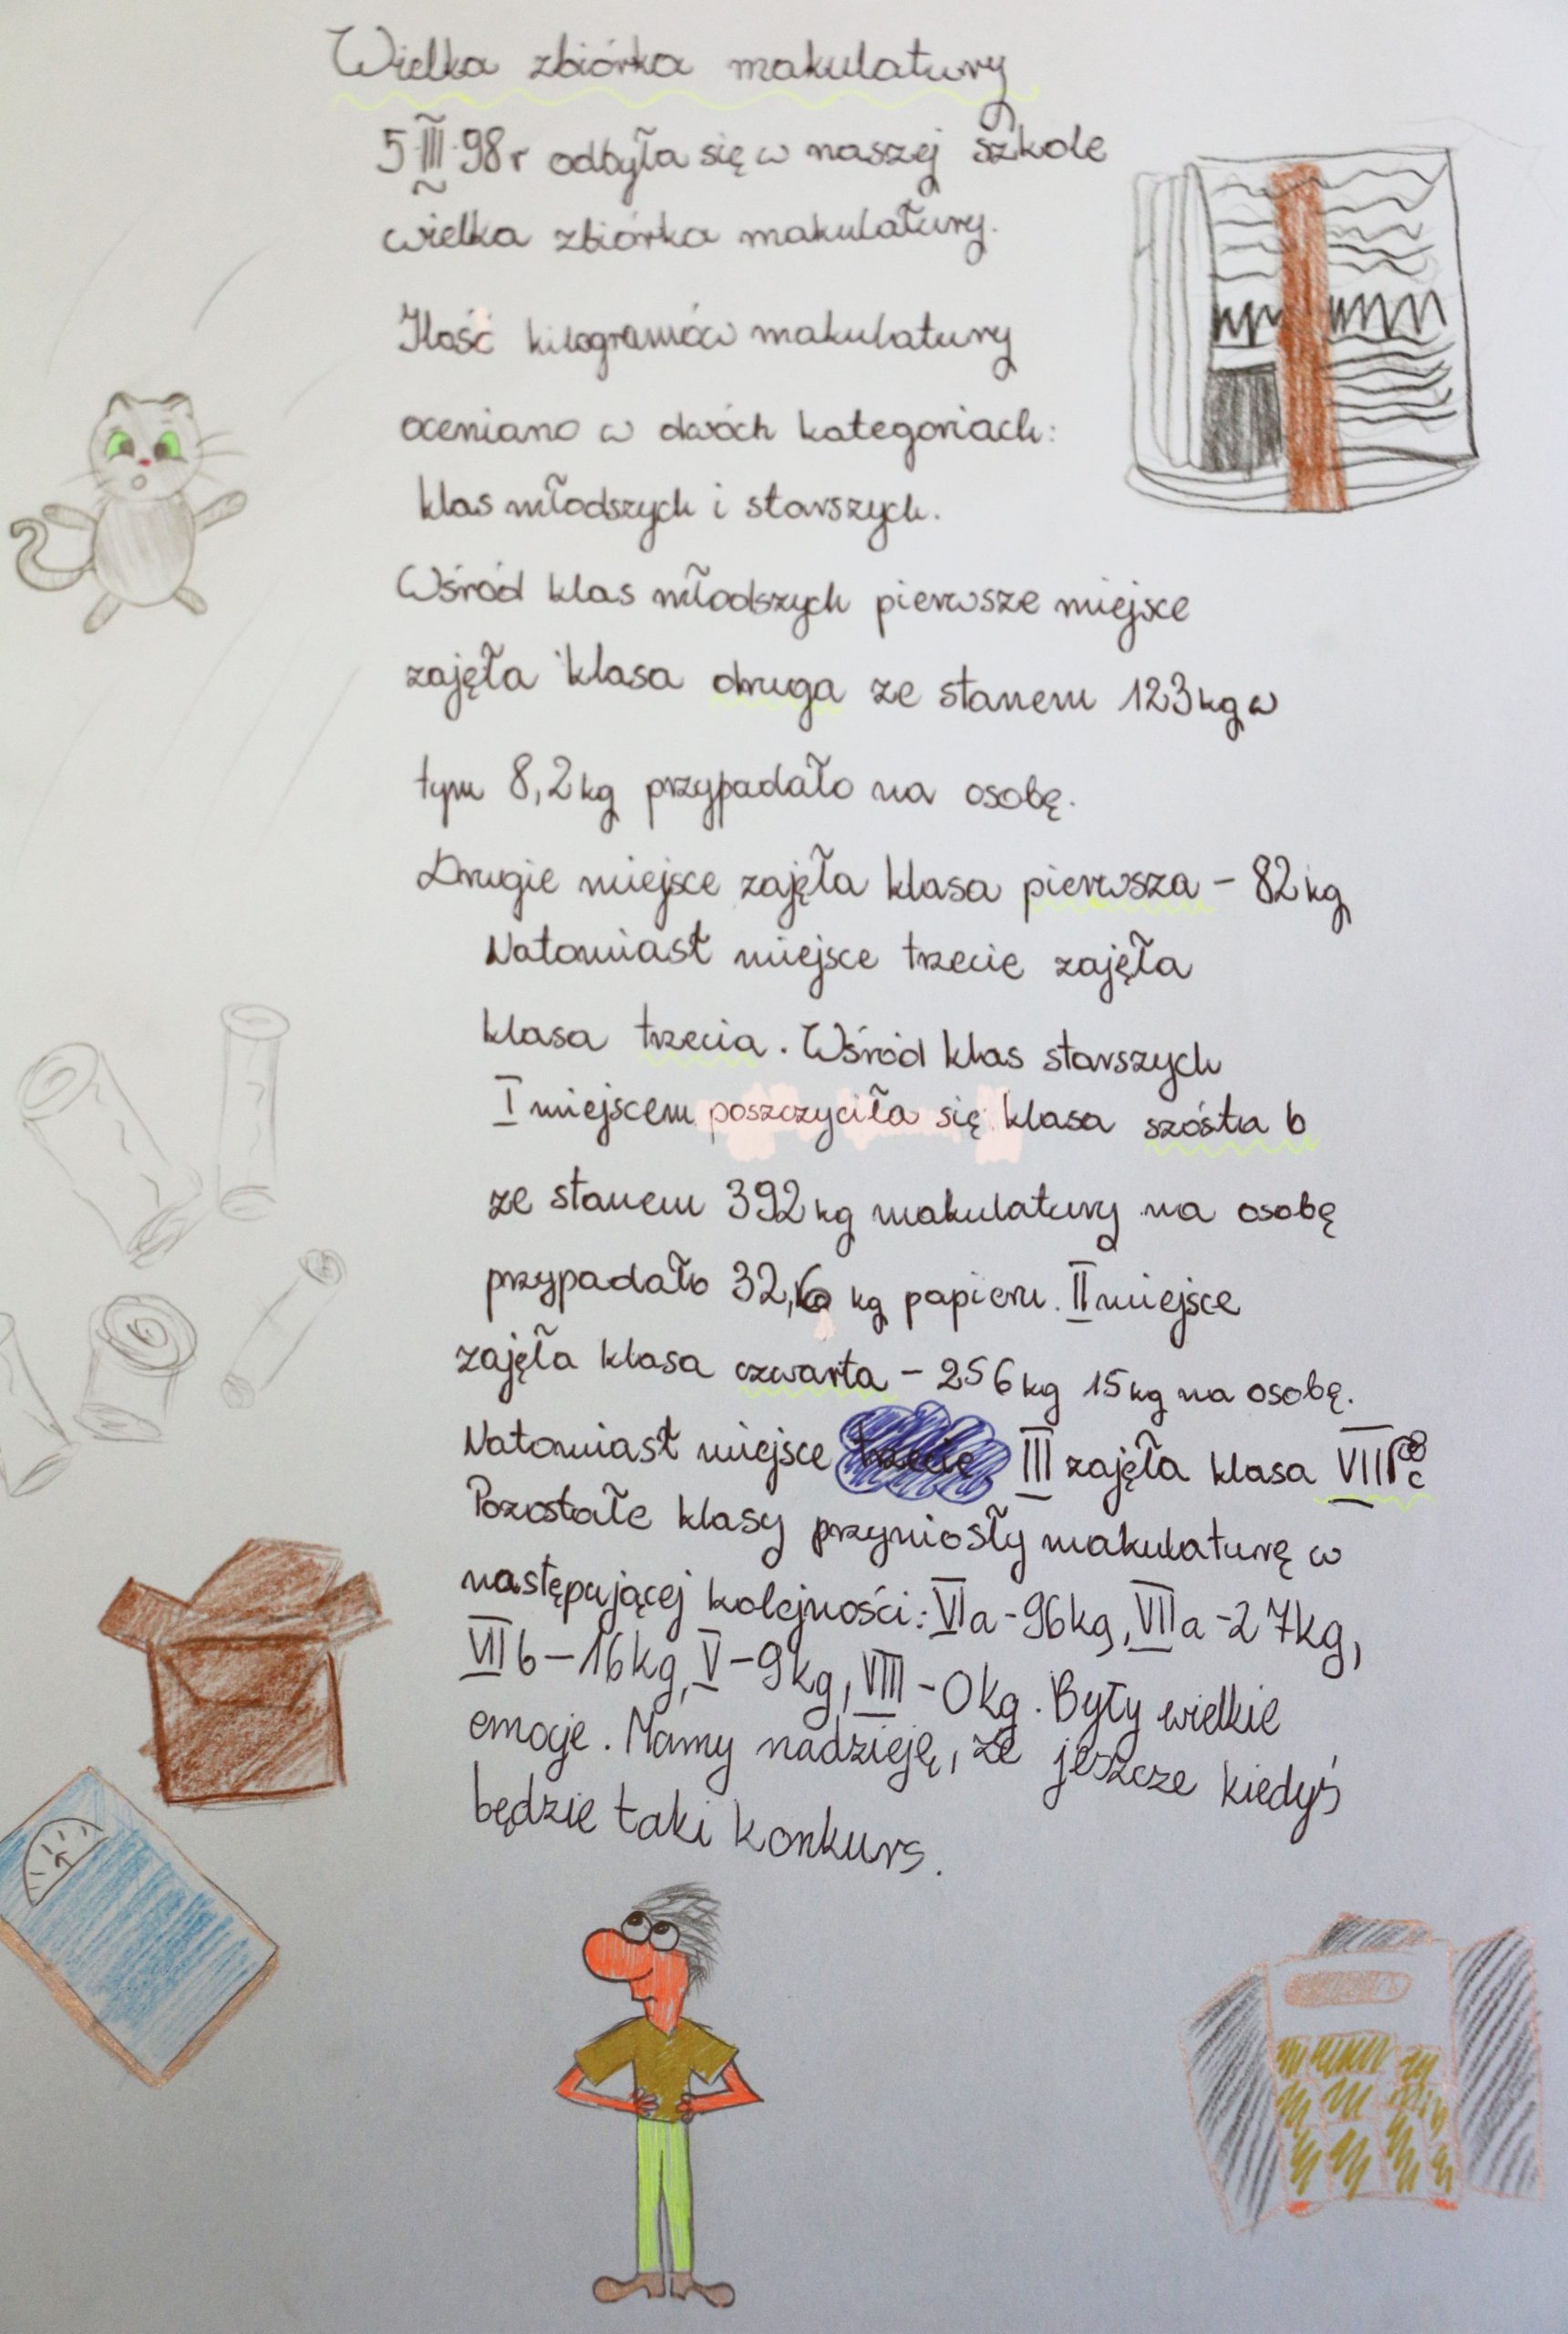 Wielka zbiórka makulatury
5 III 98 r odbyła się w naszej szkole
wielka zbiórka makulatury.
Ilość kilogramów makulatury
oceniano w dwóch kategoriach:
klas młodszych i starszych.
Wśród klas młodszych pierwsze miejsce
zajęła klasa druga ze stanem 123 kg w
tym 8,2 kg przypadało na osobę.
Drugie miejsce zajęła klasa pierwsza - 82 kg
Natomiast miejsce trzecie zajęła
klasa trzecia. Wśród klas starszych
I miejscem poszczyciła się klasa szósta b
ze stanem 392 kg makulatury na osobę
przypadało 32,6 kg papieru. II miejsce
zajęła klasa czwarta - 256 kg 15 kg na osobę.
Natomiast miejsce trzecie III zajęła klasa VII c
Pozostałe klasy przyniosły makulaturę w
następującej kolejności: VI a - 96 kg, VII a - 27 kg,
VII b - 16 kg, V - 9 kg, VIII - 0 kg. Były wielkie
emocje. Mamy nadzieję, że jeszcze kiedyś
będzie taki konkurs.